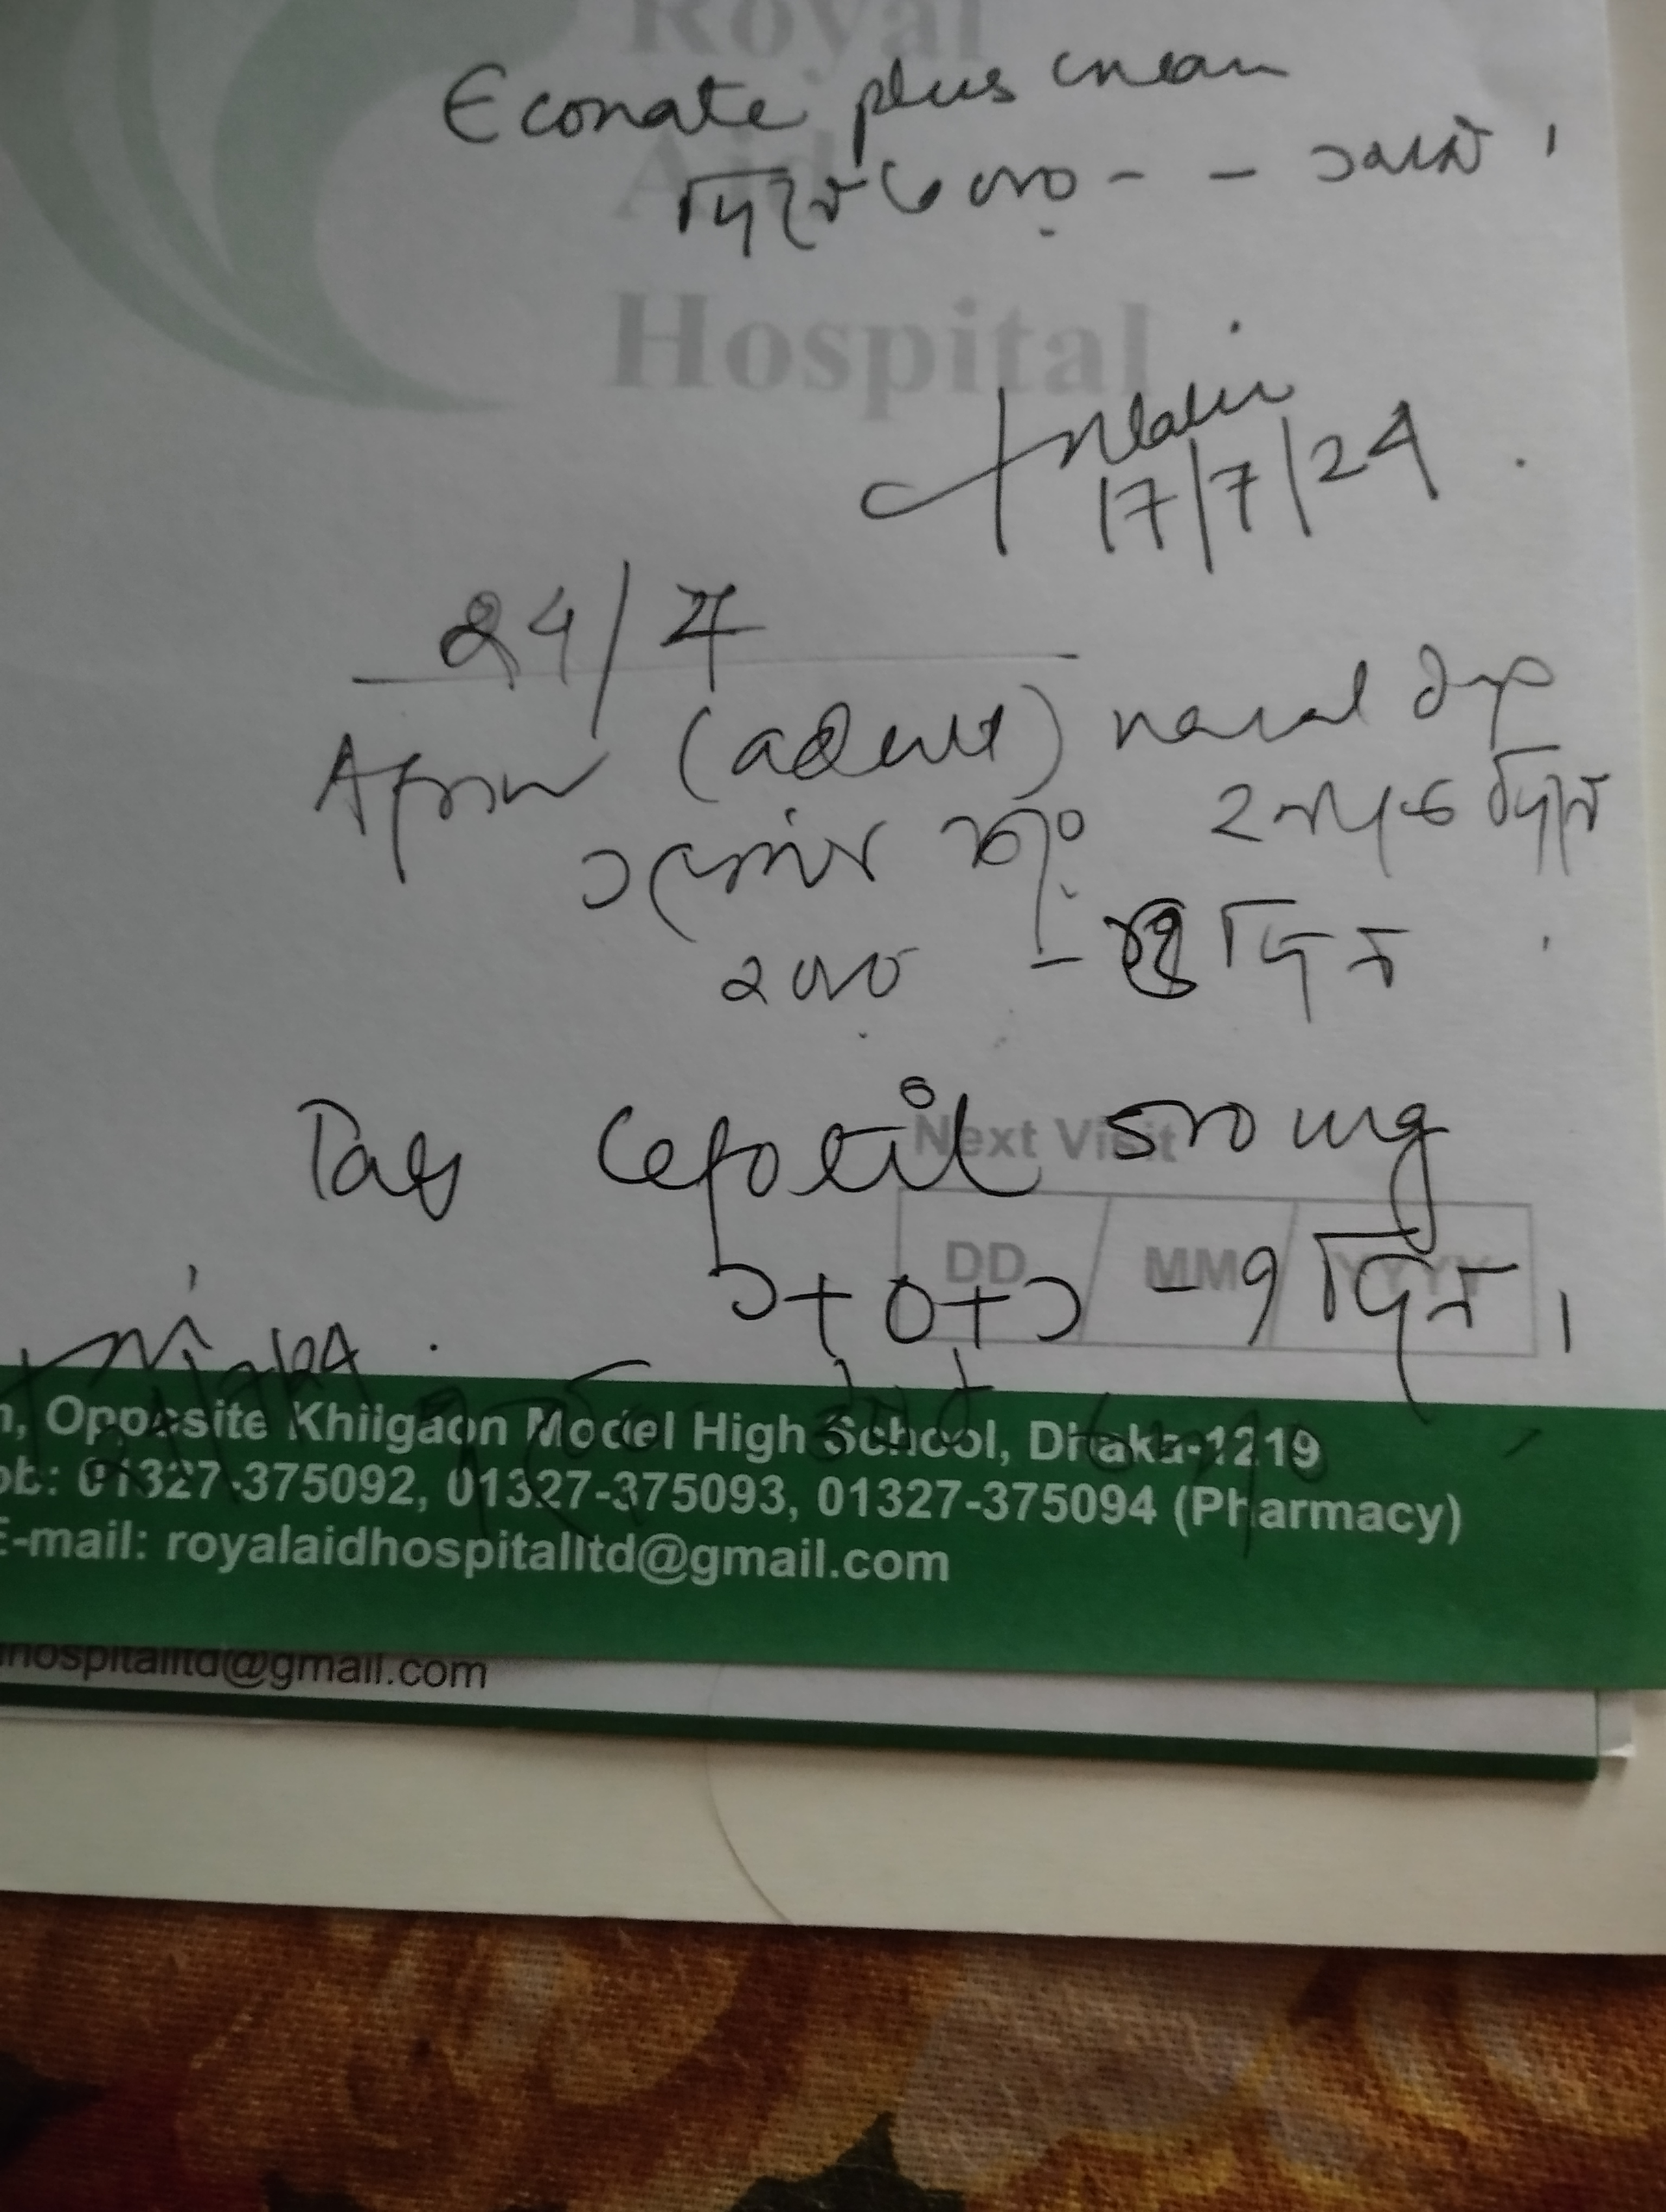 Royal
Econate plus cream
Aid
দিনে ৩ বার - - ১ মাস।
Hospital
17/7/24
24/7
Afrin (adult) nasal drop
১ ফোঁটা করে ২ নাকে দিনে
২ বার - দিন
Tab Cefotil 500mg
Next Visit
DD MM YYYY
১+০+১ - ৭ দিন।
24/7/24
Opposite Khilgaon Model High School, Dhaka-1219
ob: 01327-375092, 01327-375093, 01327-375094 (Pharmacy)
E-mail: royalaidhospitalltd@gmail.com
hospitalltd@gmail.com